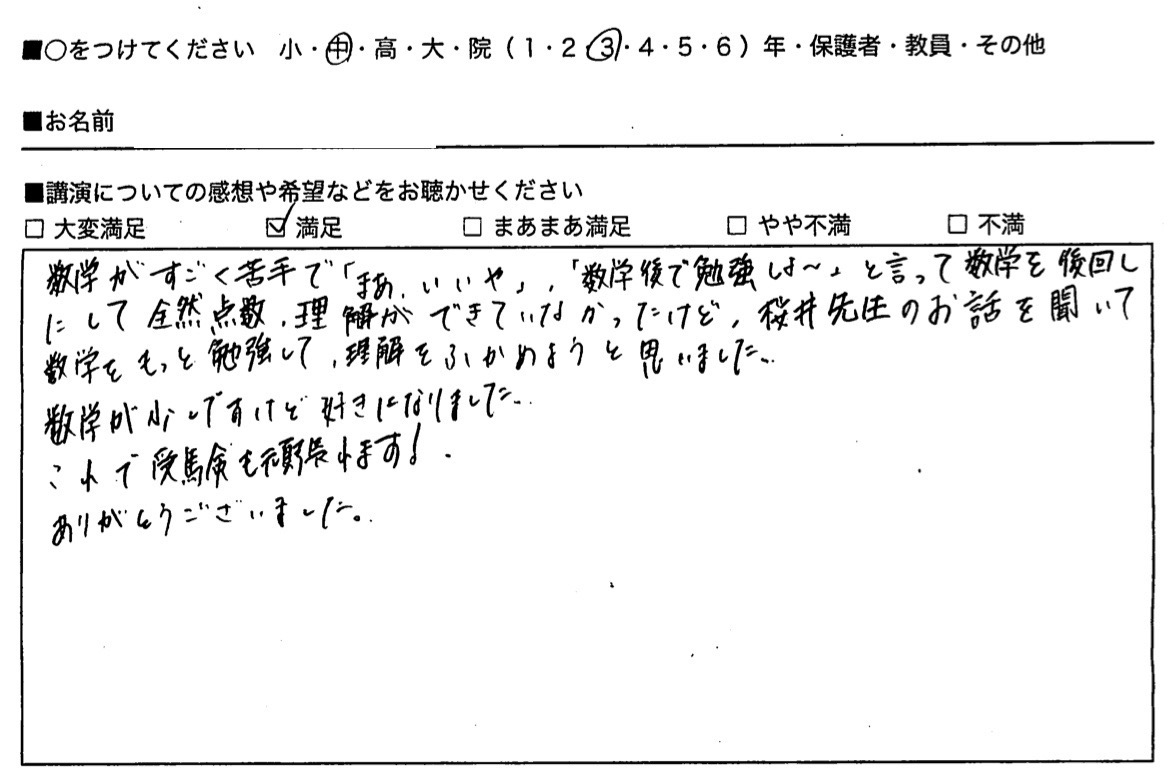 ■○をつけてください 小・中・高・大・院(1・2・3・4・5・6)年・保護者・教員・その他
■お名前
■講演についての感想や希望などをお聴かせください
□ 大変満足 ☑ 満足 □ まあまあ満足 □ やや不満 □ 不満
数学がすごく苦手で「まあ、いいや」、「数学後で勉強しよ〜」と言って数学を後回し
にして全然点数、理解ができていなかったけど、桜井先生のお話を聞いて
数学をもっと勉強して、理解をふかめようと思いました。
数学が少しですけど好きになりました。
これで受験も頑張れます!
ありがとうございました。